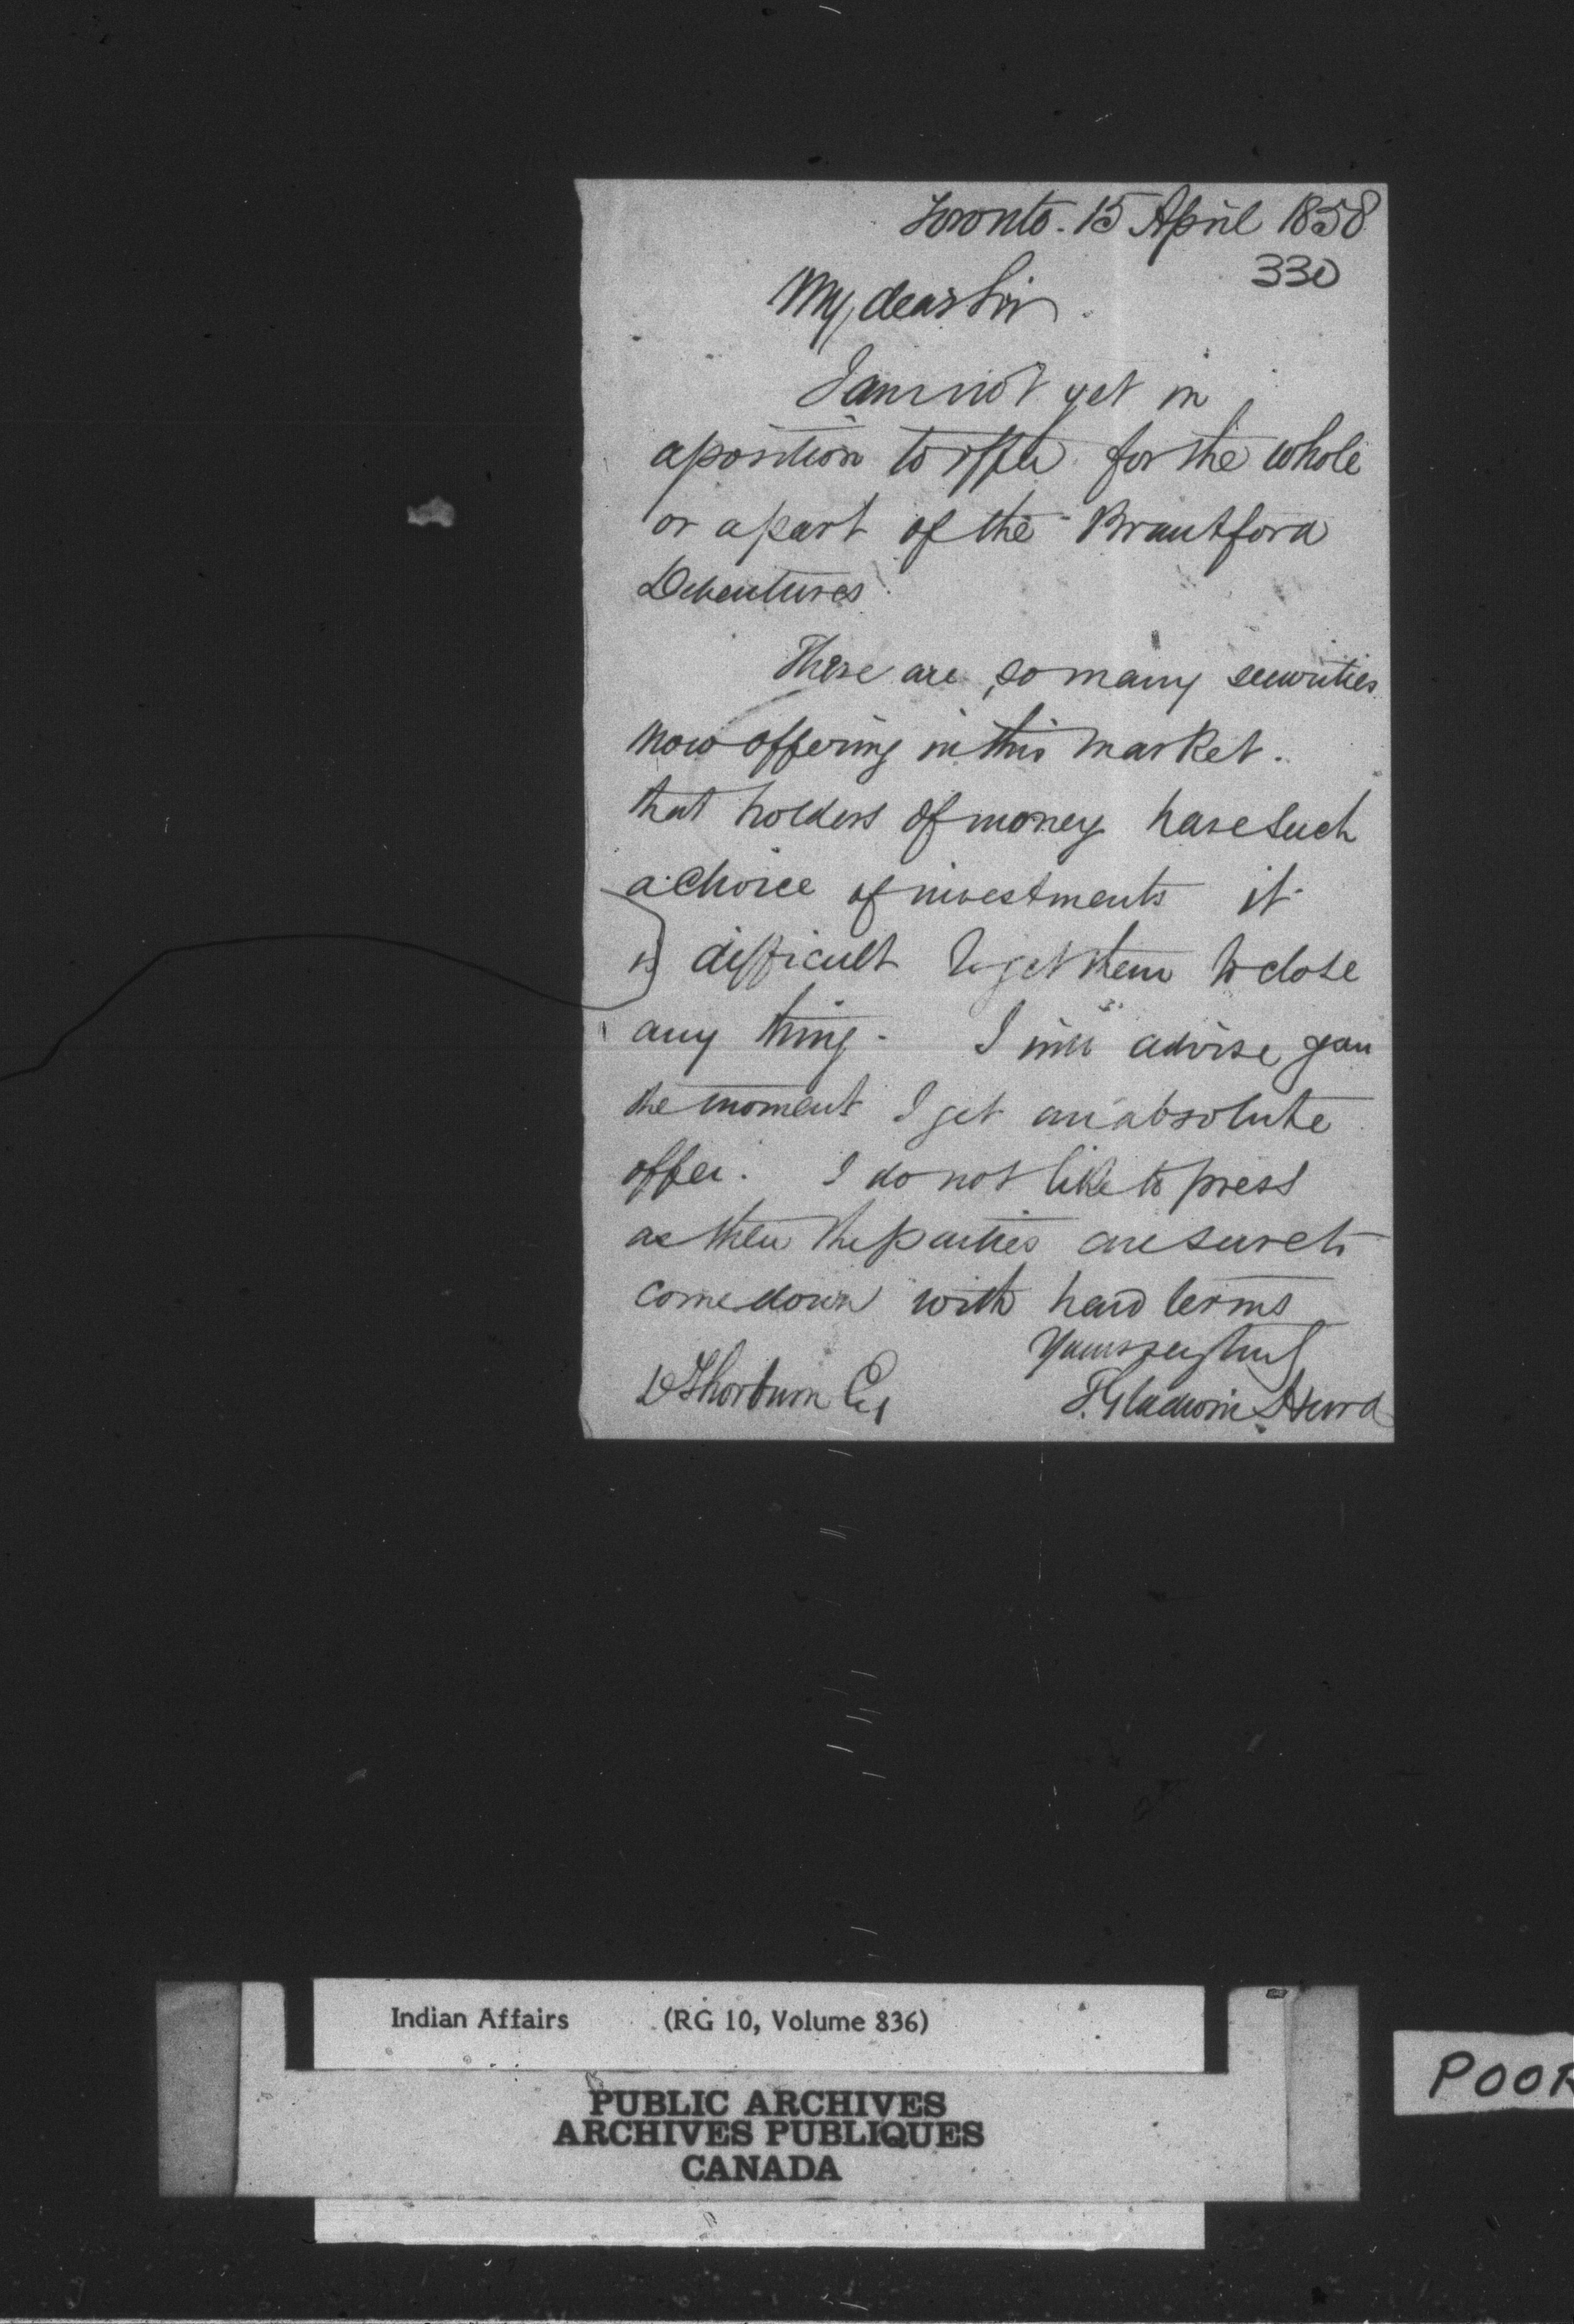 Toronto. 15 April 1858
330
My dear Sir.
I am not yet in
a position to offer for the whole
or a part of the Brantford
Debentures
There are so many securities
now offering in this market.
that holders of money have such
a choice of investments it
is difficult to get them to close
any thing - I will advise you
the moment I get an absolute
offer. I do not like to press
as then the parties are sure to
come down with hard terms
Yours very truly
D Thorburn Esq
T. Gladwin Hurd
Indian Affairs (RG 10, Volume 836)
PUBLIC ARCHIVES
ARCHIVES PUBLIQUES
CANADA
POOR